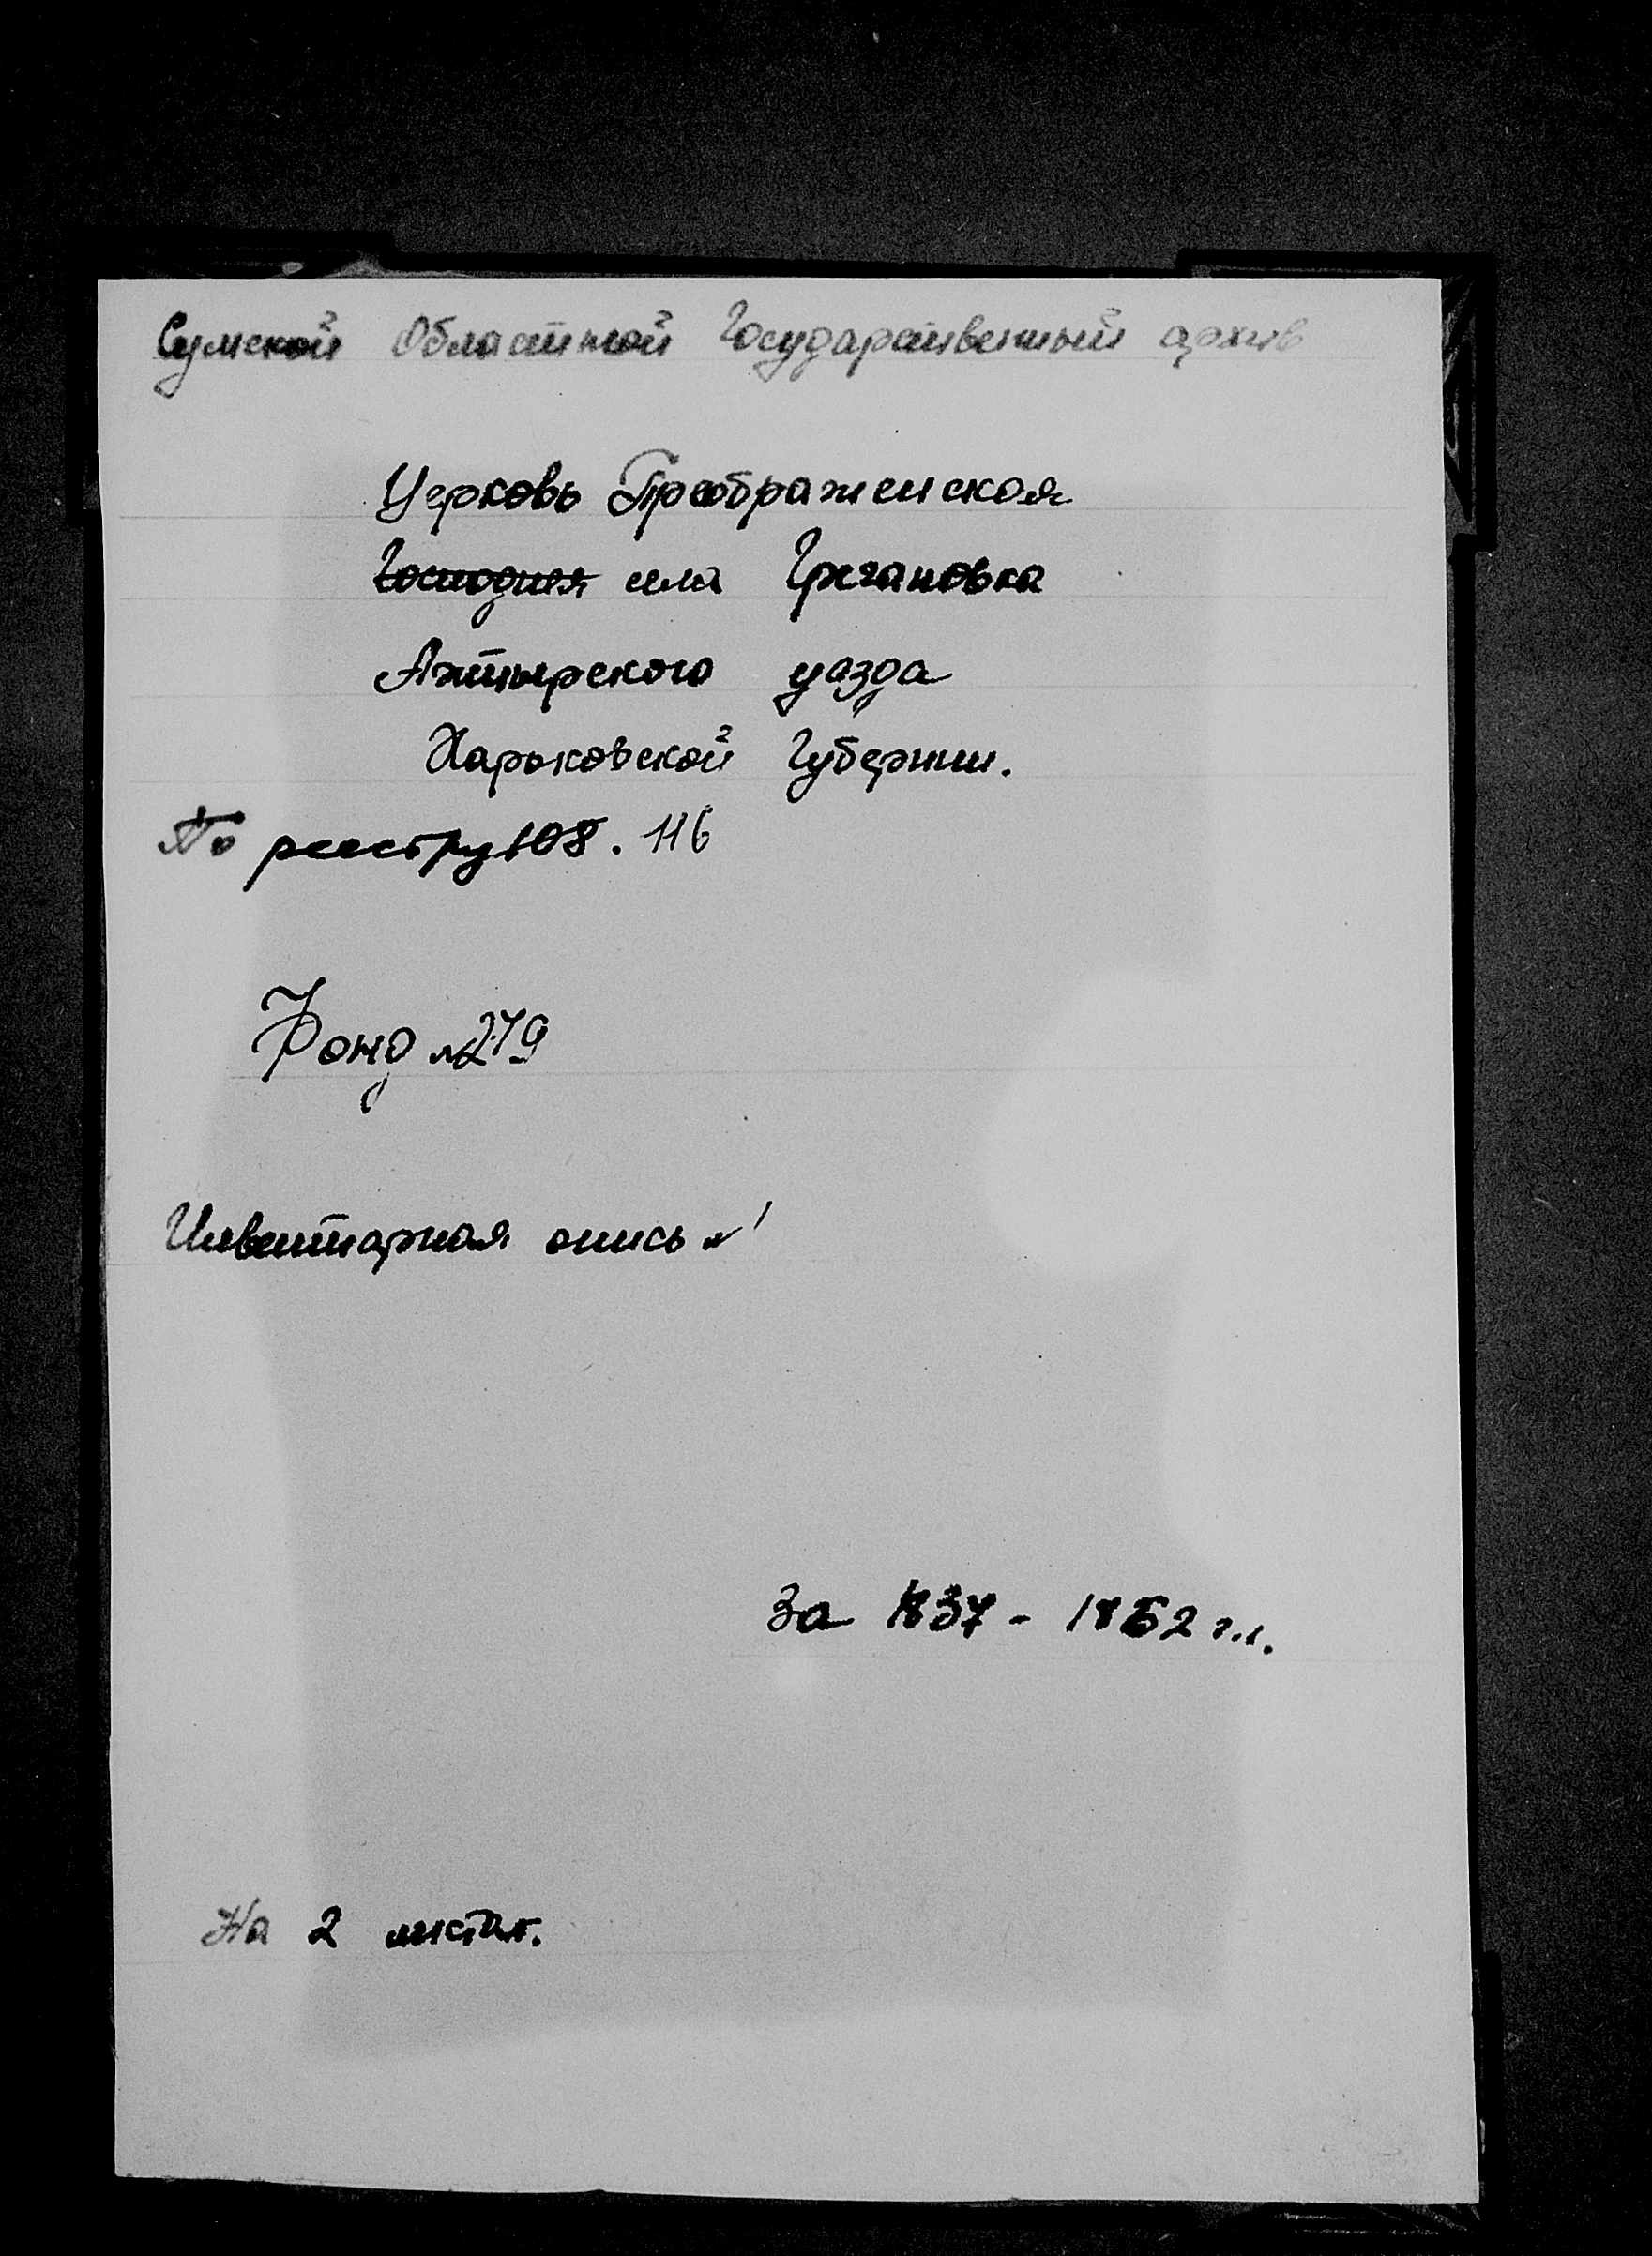 Сумской Областной Государственный архив
Церковь Преображенская
Господня села Грязновка
Ахтырского уезда
Харьковской Губернии.
По реестру 108. 116
Фонд №279
Инвентарная опись №1
За 1837 - 1862 г.г.
На 2 листах.